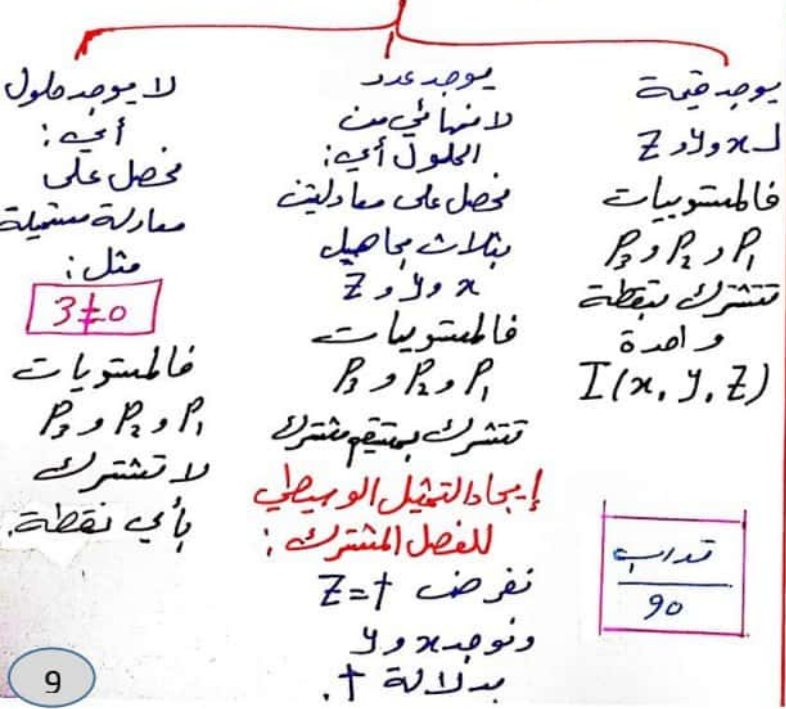 يوجد قيمة
لـ x و y و z
فالمستويات
P₁ و P₂ و P₃
تشترك بنقطة
واحدة
I(x, y, z)
تدرب
90
يوجد عدد
لا نهائي من
الحلول أي:
نحصل على معادلتين
بثلاث مجاهيل
x و y و z
فالمستويات
P₁ و P₂ و P₃
تشترك بمستقيم مشترك
إيجاد التمثيل الوسيطي
للفصل المشترك:
نفرض z=t
ونوجد x و y
بدلالة t.
لا يوجد حلول
أي:
نحصل على
معادلة مستحيلة
مثل:
3≠0
فالمستويات
P₁ و P₂ و P₃
لا تشترك
بأي نقطة.
9